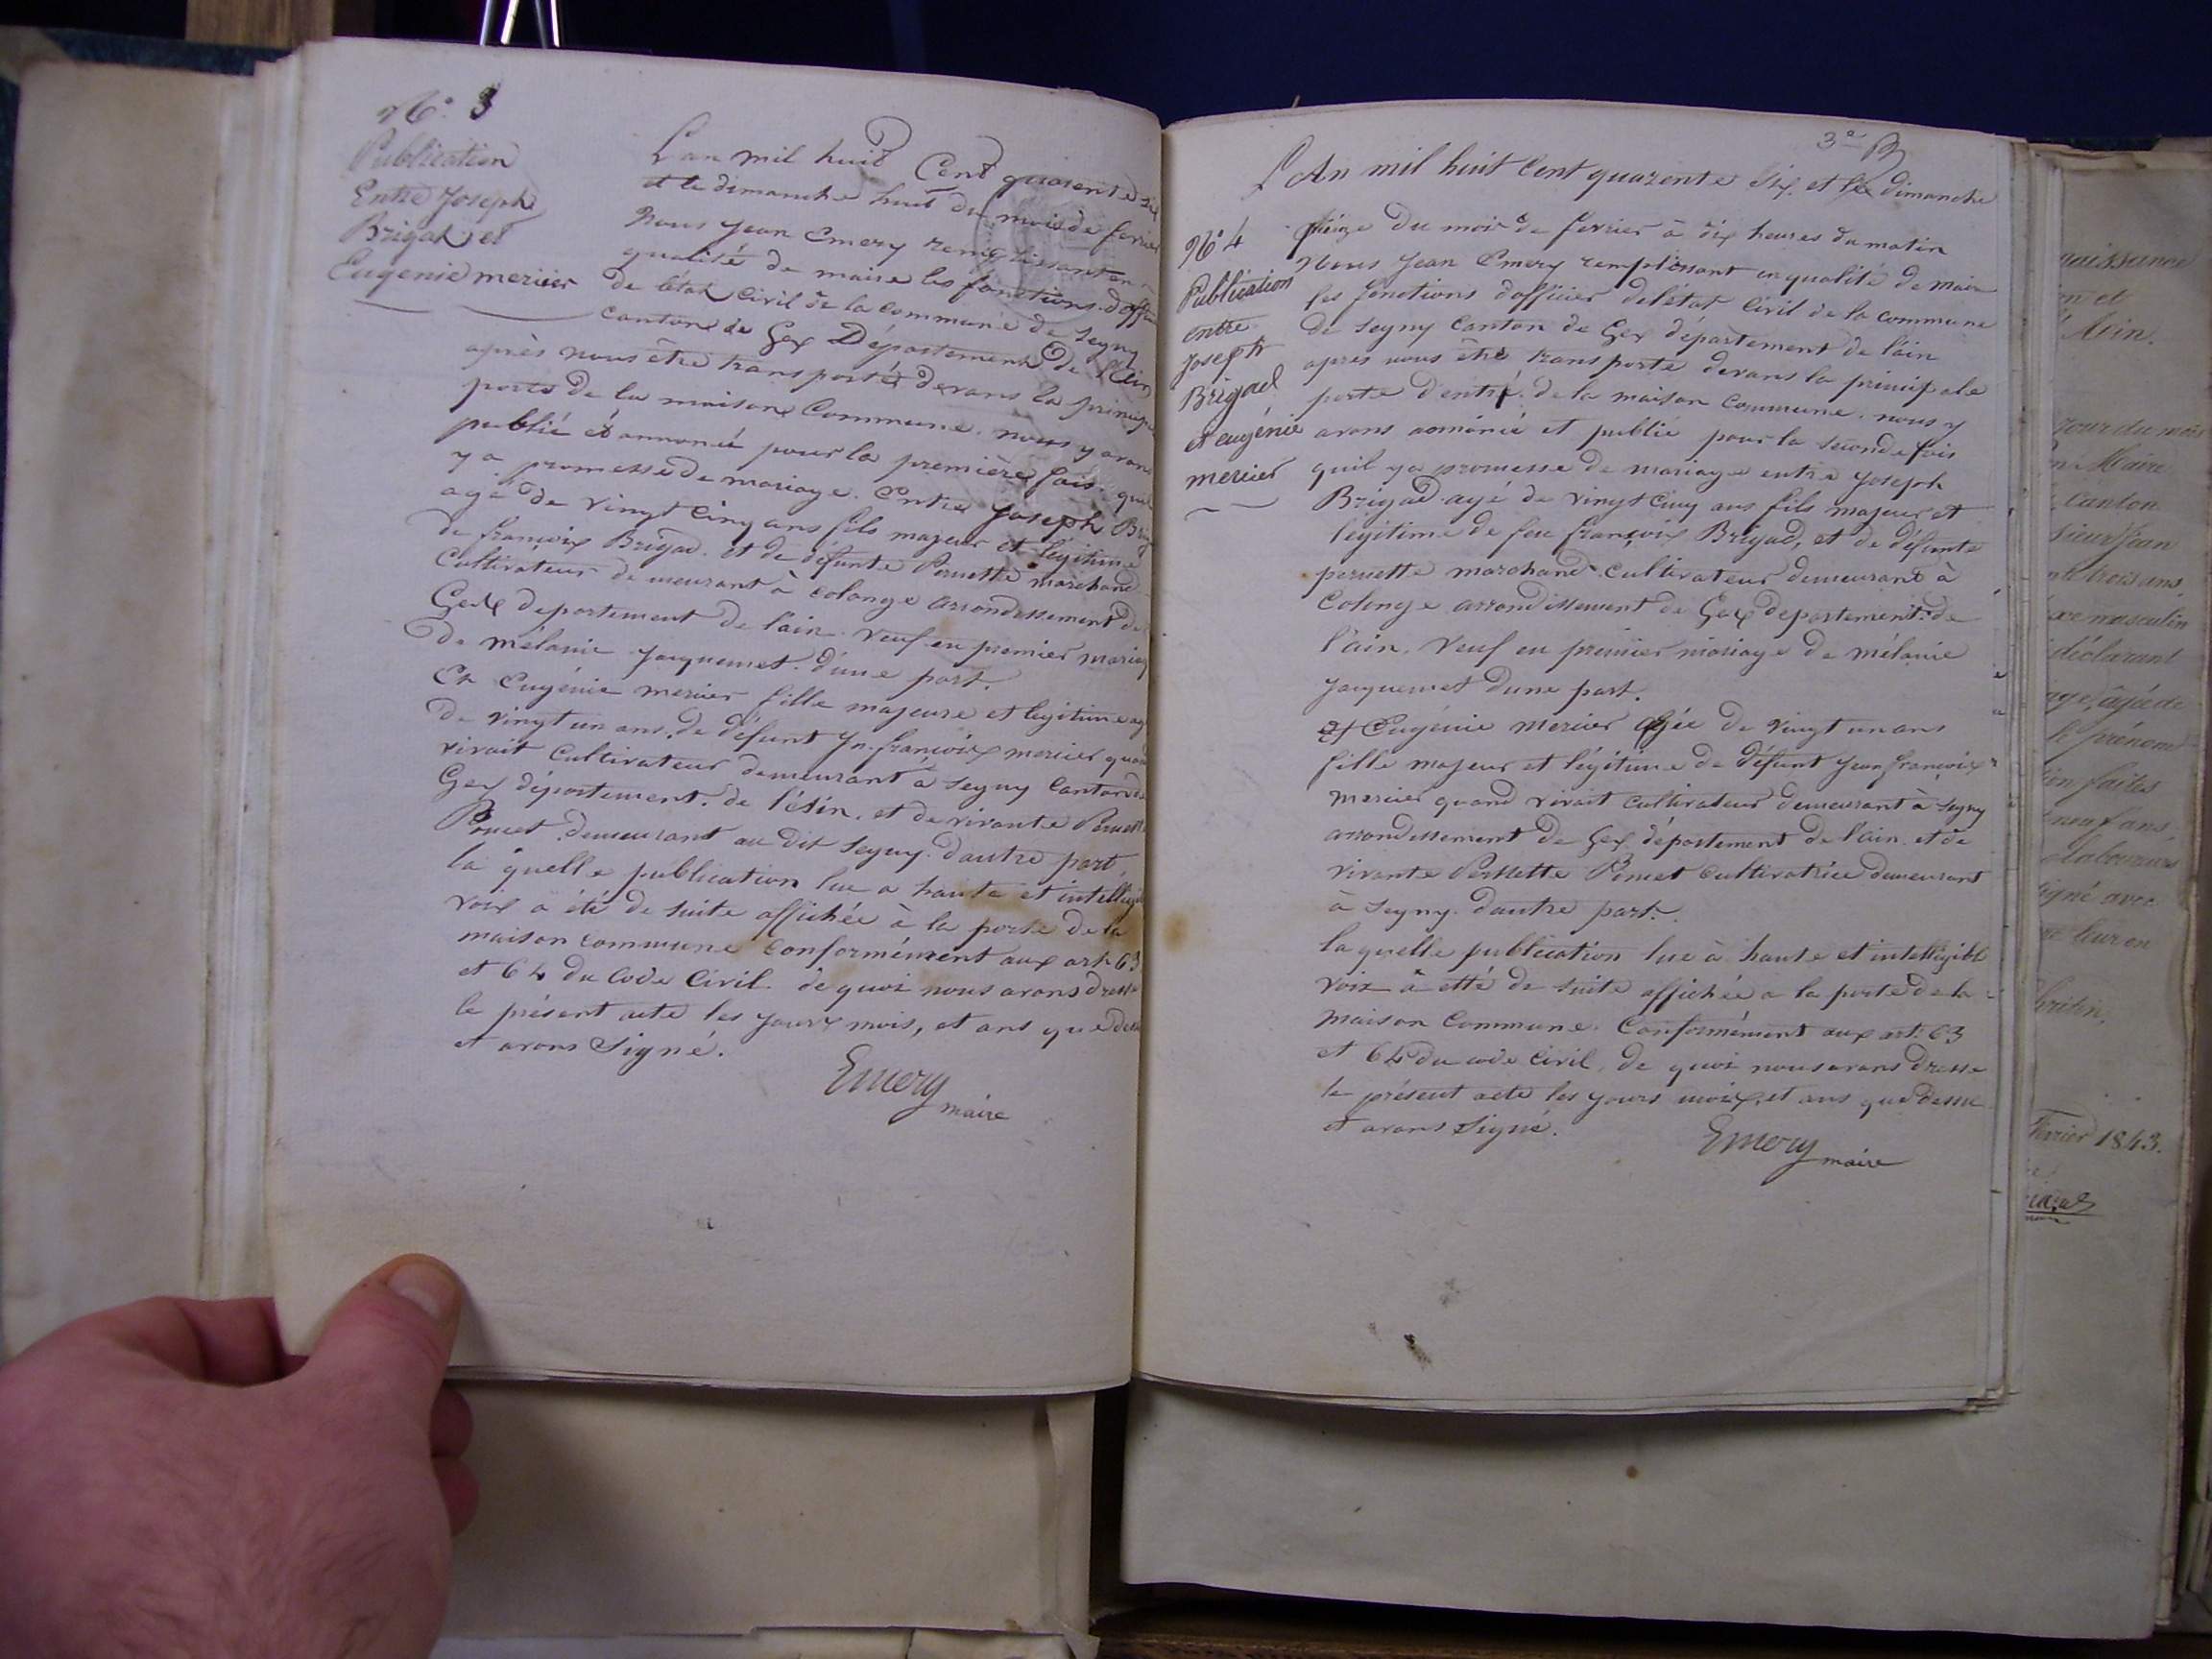 N° 3
Publication
Entre Joseph
Brigad et
Eugenie mercier
L'an mil huit Cent quarente six
et le dimanche huit du mois de fevrier
Nous Jean Emery remplissant en
qualité de maire les fonctions d'offi
de l'état Civil de la Commune de Segny
canton de Gex Département de l'Ain
après nous être transporté devans la princip
porte de la maison Commune. nous y avons
publié et annoncé pour la première fois. quil
y a promesse de mariage. Entre Joseph Brig
agé de vingt cinq ans fils majeur et légitime
de françoix Brigad. et de défunte Pernette marchand
Cultivateur demeurant à Colonge arrondessement de
Gex departement de l'ain. veuf en premier mariag
de mélanie Jacquemet. d'une part.
Et Eugénie mercier fille majeure et legitime ag
de vingt un ans. de défunt Jn. françoix mercier quan
vivait Cultivateur demeurant à Segny Canton de
Gex département. de l'Ain. et de vivante Pernette
Poncet. demeurant au dit Segny. dautre part,
la quelle publication lue a haute et intelligi
voix a été de suite affichée à la porte de la
maison commune Conformément aux art. 63
et 64 du Code Civil. de quoi nous avons dresse
le présent acte les jours mois, et ans que de
et avons Signé.
Emery
maire
3e
L'An mil huit Cent quarente Six. et le dimanche
N° 4
Publication
entre
Joseph
Brigad
et eugénie
mercier
du mois de fevrier à dix heures du matin
Nous Jean Emery remplissant en qualité de maire
les fonctions d'officier de l'état Civil de la commune
de Segny Canton de Gex département de l'ain
apres nous être transporte devans la principale
porte d'entré. de la maison Commune. nous y
avons annoncé et publie pour la seconde fois
quil y a promesse de mariage entre Joseph
Brigad. agé de vingt Cinq ans fils majeur et
legitime de feu françoix Brigad, et de défunte
pernette marchand. cultivateur demeurant à
Colonge arrondissement de Gex departement de
l'ain. Veuf en premier mariage de mélanie
Jacquemet dune part.
et Eugénie mercier agée de vingt un ans
fille majeur et légitime de défunt Jean françoix
mercier quand vivait cultivateur demeurant à Segny
arrondissement de Gex département de l'ain. et de
vivante Pernette Poncet Cultivatrice demeurant
à Segny. dautre part.
la quelle publication lue à haute et intelligible
voix à etté de suite affichée a la porte de la
maison Commune. Conformément aux art. 63
et 64 du code Civil, de quoi nous avons dresse
le présent acte les jours moix, et ans que dessus
et avons Signé.
Emery
maire
Ain.
jour du mois
Maire
canton
sieur Jean
trois ans,
masculin
déclarant
âgé de
prénom
faites
neuf ans,
laboureur
signé avec
leur en
Février 1843.